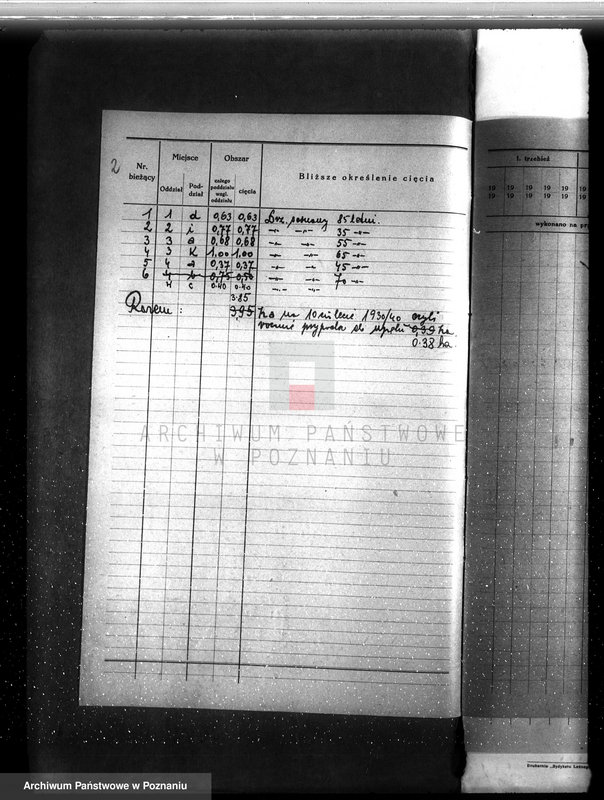 2
Nr. bieżący | Miejsce | Obszar | Bliższe określenie cięcia
Oddział | Pod-dział | całego poddziału wzgl. oddziału | cięcia
1 | 1 | d | 0,63 | 0,63 | 85 letni.
2 | 2 | i | 0,77 | 0,77 | -"- -"- 35 -"-
3 | 3 | a | 0,68 | 0,68 | -"- -"- 55 -"-
4 | 3 | k | 1,00 | 1,00 | -"- -"- 65 -"-
5 | 4 | a | 0,37 | 0,37 | -"- -"- 45 -"-
6 | 4 | b | 0,75 | 0,50 | -"- -"- 70 -"-
4 | c | 0.40 | 0.40 | -"- -"-
3.85
Razem : 3,95 ha na 10 lecie 1930/40 czyli
rocznie przypada do 0,39 ha
0.38 ha
ARCHIWUM PAŃSTWOWE
W POZNANIU
I. trzebież
19 19 19 19 19 19
19 19 19 19 19 19
wykonano na
Drukarnia
Archiwum Państwowe w Poznaniu